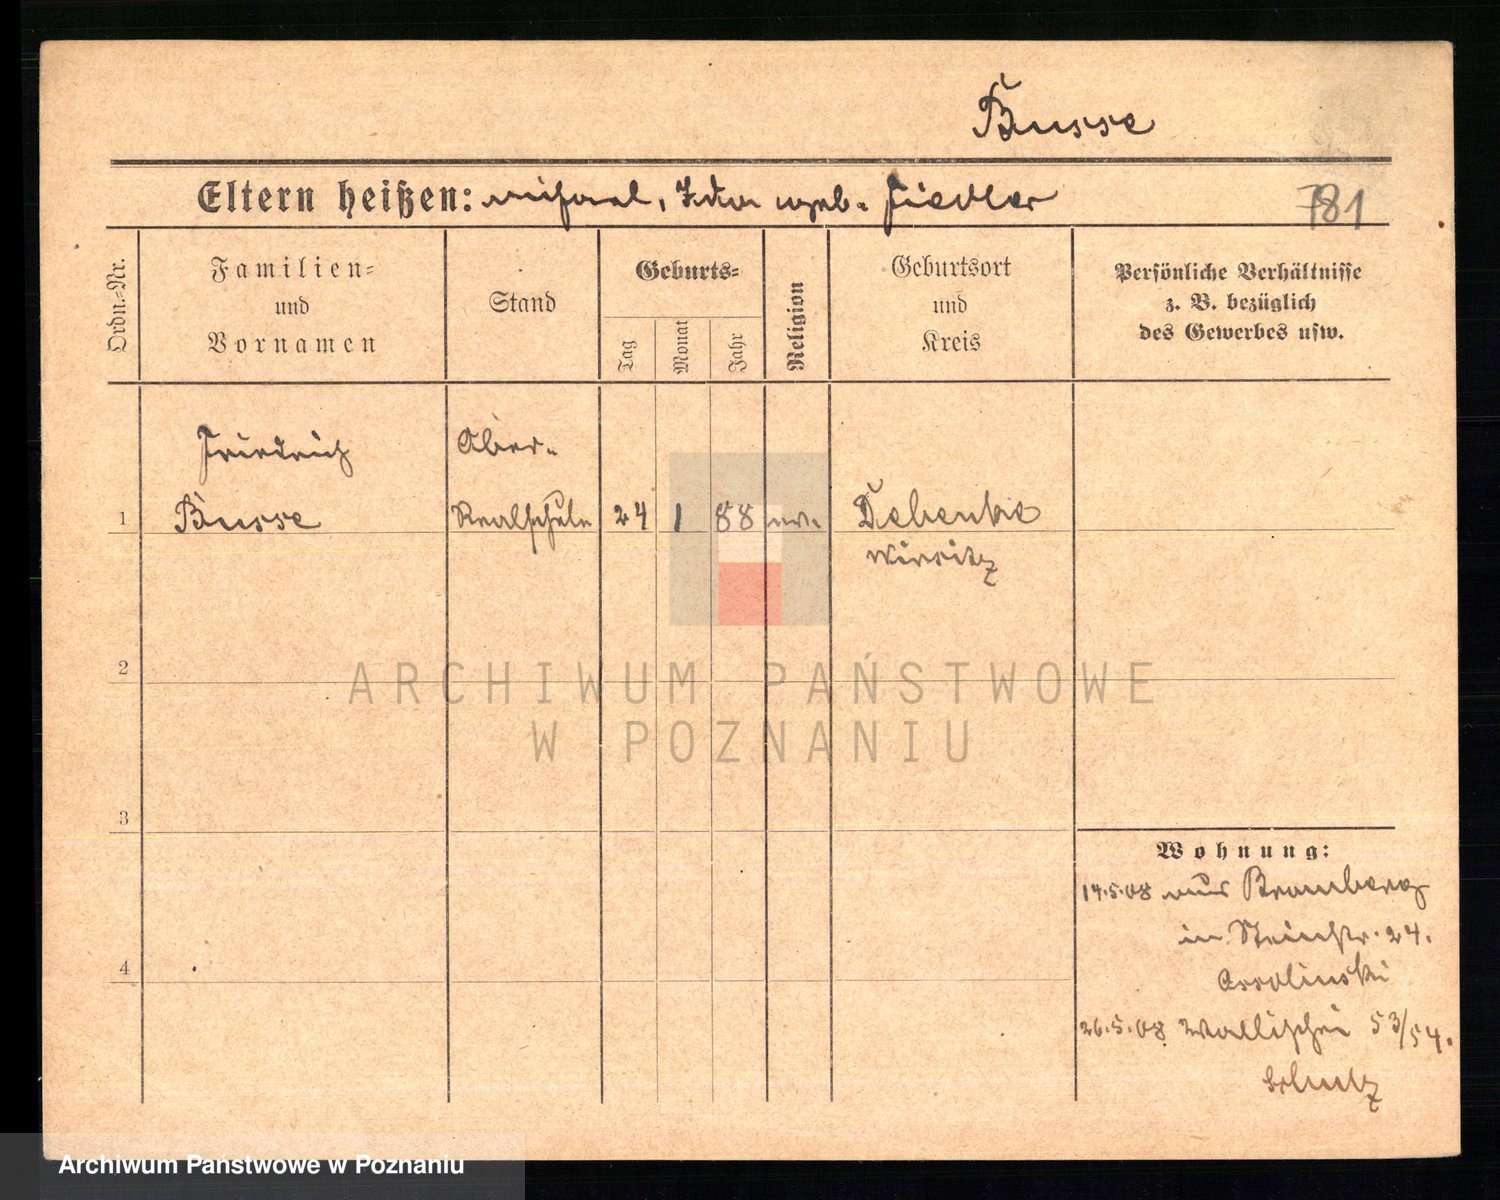 Busse
Eltern heißen: Michael, Ida geb. Fiedler
781
Ordn.-Nr.
Familien-
und
Vornamen
Stand
Geburts-
Tag
Monat
Jahr
Religion
Geburtsort
und
Kreis
Persönliche Verhältnisse
z. B. bezüglich
des Gewerbes usw.
Friedrich Ober-
1 Busse Realschüler 24 1 88 ev. Debenke
Wirsitz
2
3
4
ARCHIWUM PAŃSTWOWE
W POZNANIU
Wohnung:
14.5.08 aus Bromberg
in 24.
26.5.08 Wallischei 53/54.
Archiwum Państwowe w Poznaniu